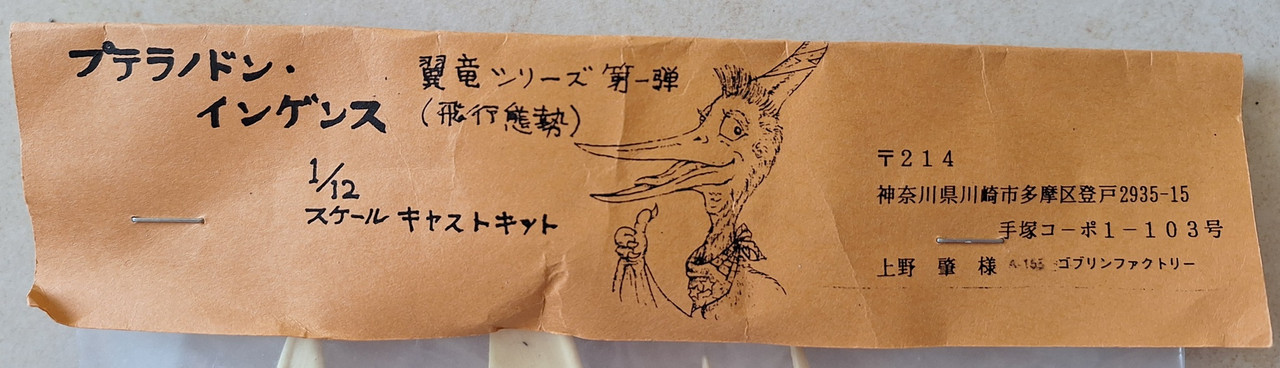 プテラノドン・
インゲンス
翼竜シリーズ 第一弾
(飛行態勢)
1/12
スケール キャストキット
〒214
神奈川県川崎市多摩区登戸2935-15
手塚コーポ1-103号
上野 肇 様 A-155 ゴブリンファクトリー